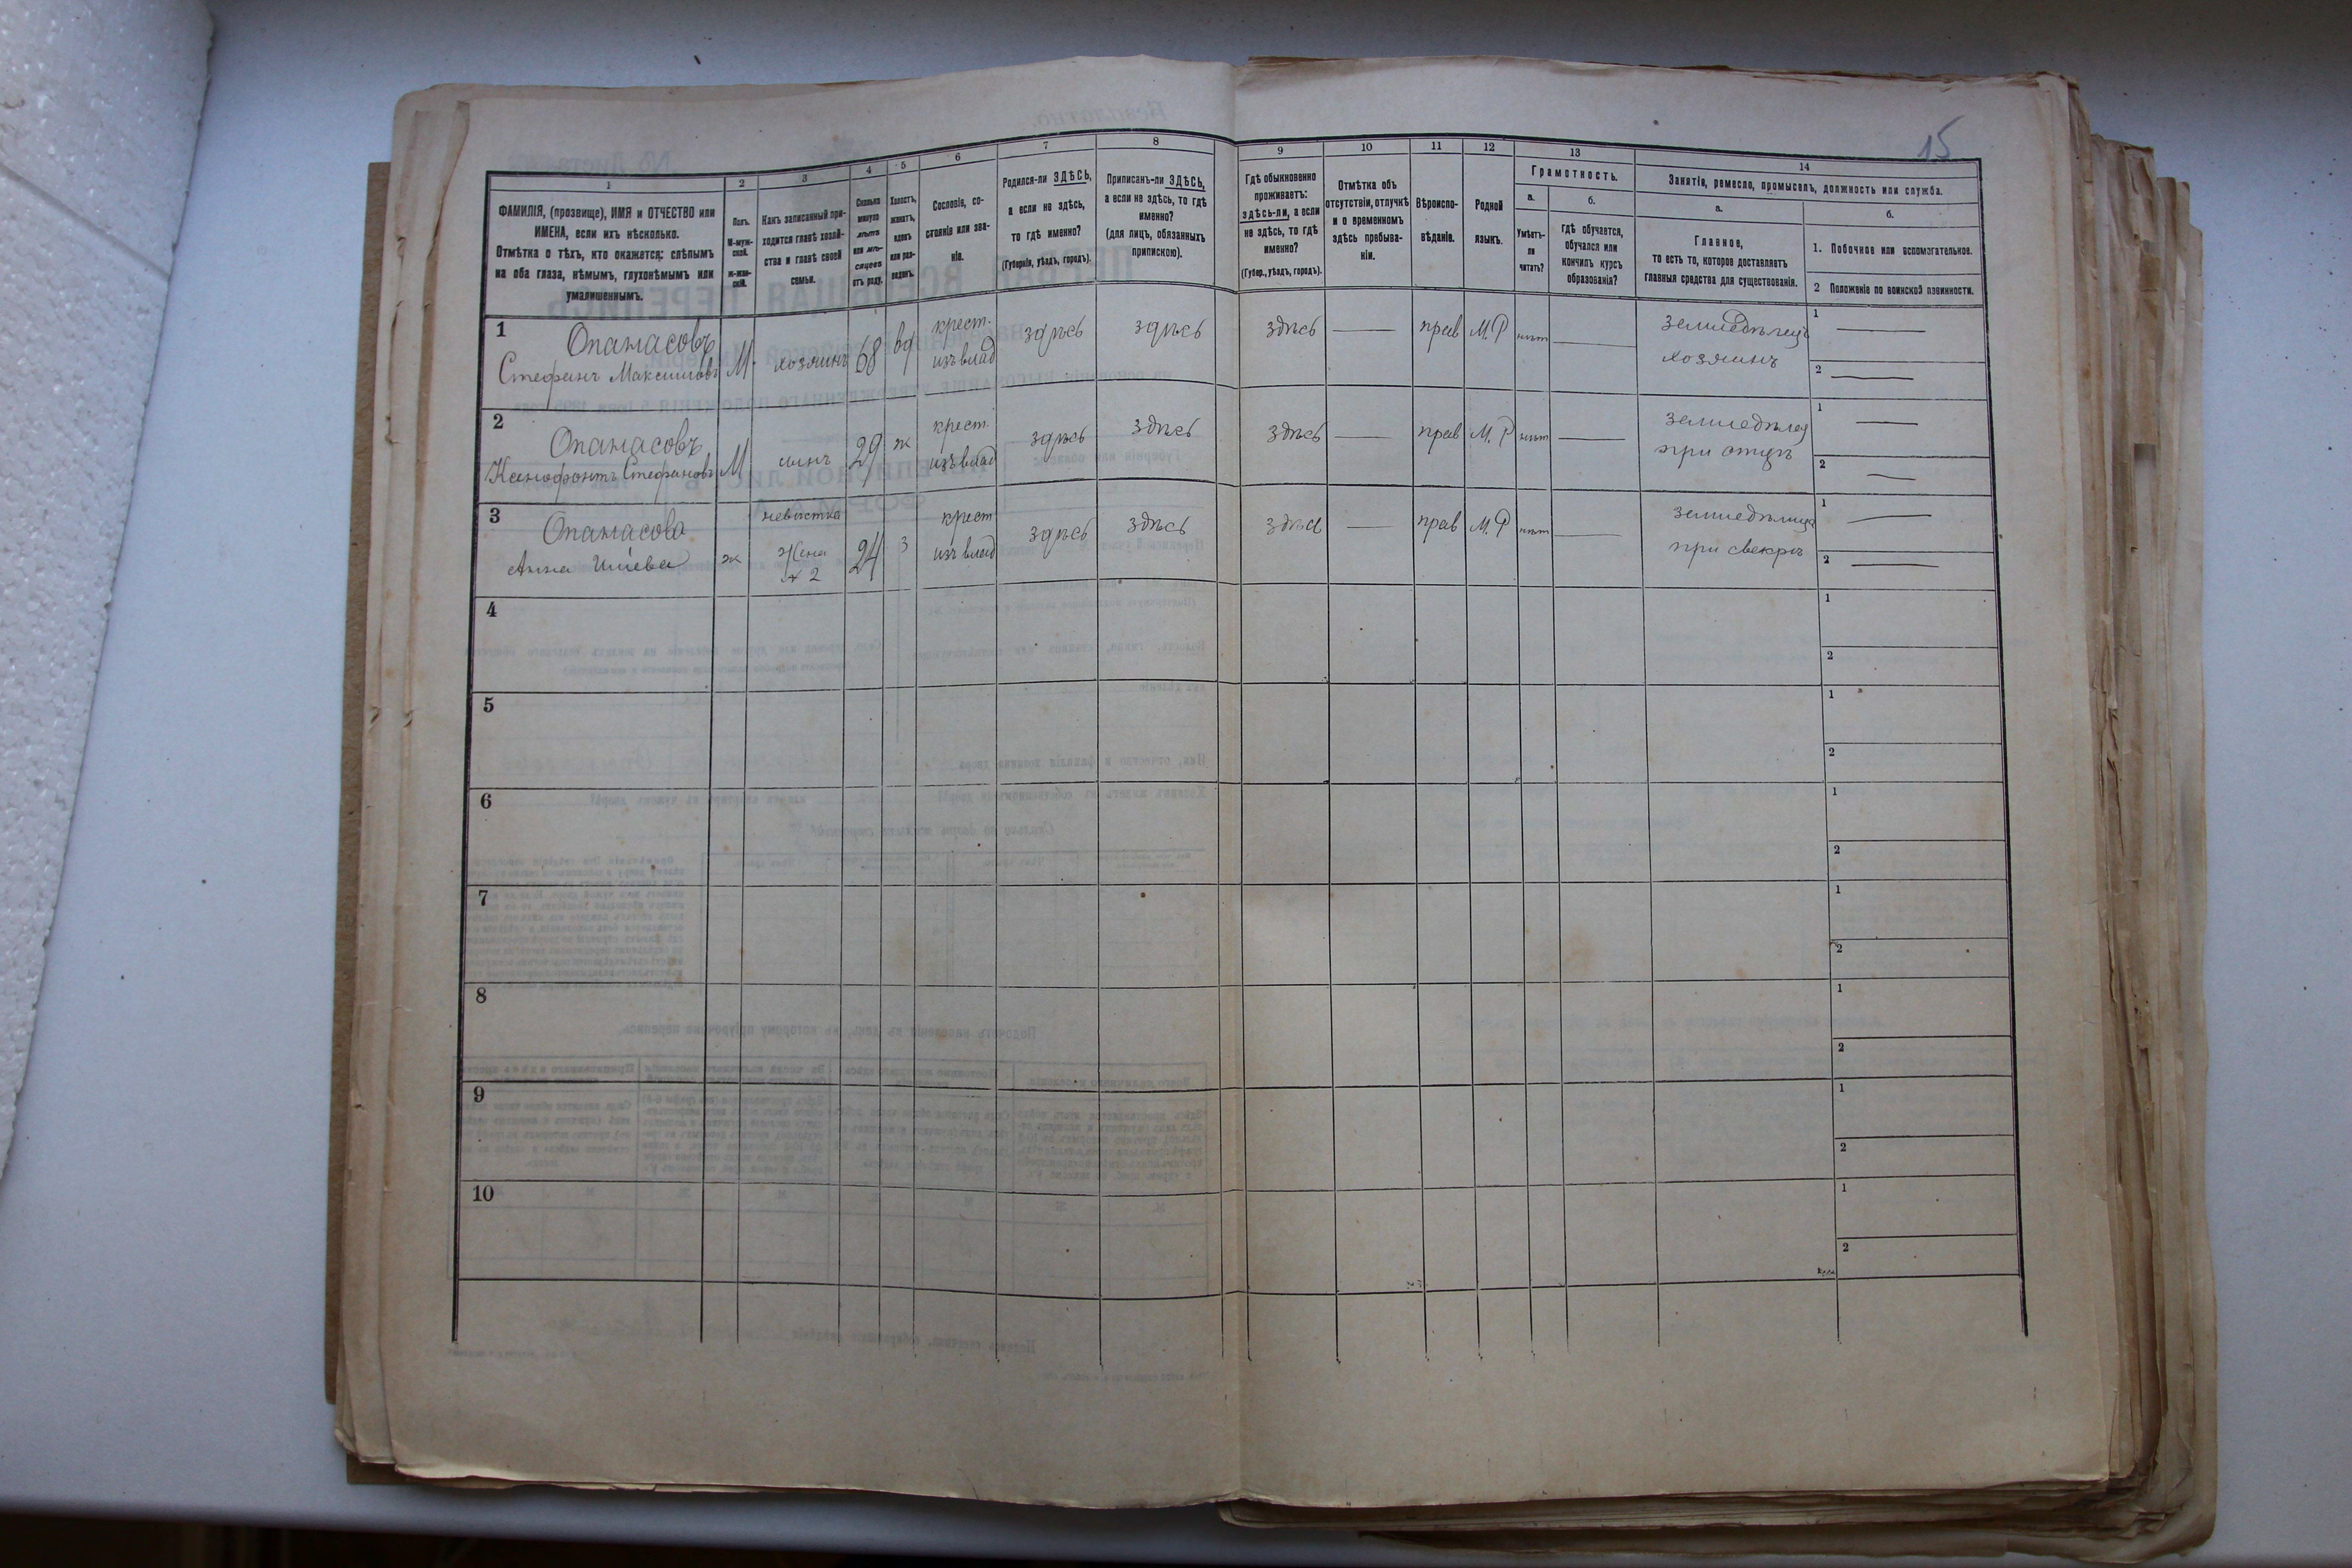 15
1
2
3
4
5
6
7
8
9
10
11
12
13
14
ФАМИЛІЯ, (прозвище), ИМЯ и ОТЧЕСТВО или
ИМЕНА, если ихъ нѣсколько.
Отмѣтка о тѣхъ, кто окажется: слѣпымъ
на оба глаза, нѣмымъ, глухонѣмымъ или
умалишеннымъ.
Полъ.
М-муж-
ской.
ж-жен-
скій.
Какъ записанный при-
ходится главѣ хозяй-
ства и главѣ своей
семьи.
Сколько
минуло
лѣтъ
или мѣ-
сяцевъ
отъ роду.
Холостъ,
женатъ,
вдовъ
или раз-
веденъ.
Сословіе, со-
стояніе или зва-
ніе.
Родился-ли ЗДѢСЬ,
а если не здѣсь,
то гдѣ именно?
(Губернія, уѣздъ, городъ).
Приписанъ-ли ЗДѢСЬ,
а если не здѣсь, то гдѣ
именно?
(для лицъ, обязанныхъ
припискою).
Гдѣ обыкновенно
проживаетъ:
здѣсь-ли, а если
не здѣсь, то гдѣ
именно?
(Губер., уѣздъ, городъ).
Отмѣтка объ
отсутствіи, отлучкѣ
и о временномъ
здѣсь пребыва-
ніи.
Вѣроиспо-
вѣданіе.
Родной
языкъ.
Грамотность.
а.
Умѣетъ-
ли
читать?
б.
гдѣ обучается,
обучался или
кончилъ курсъ
образованія?
Занятіе, ремесло, промыселъ, должность или служба.
а.
Главное,
то есть то, которое доставляетъ
главныя средства для существованія.
б.
1. Побочное или вспомогательное.
2 Положеніе по воинской повинности.
1 Опанасовъ Стефанъ Максимовъ М. хозяинъ 68 вд крест. изъ влад здѣсь здѣсь здѣсь — прав М.Р нѣт — земледѣлецъ хозяинъ 1 — 2 —
2 Опанасовъ Ксенофонтъ Стефановъ М сынъ 29 ж крест. изъ влад здѣсь здѣсь здѣсь — прав М.Р нѣт — при отцѣ 1 — 2 —
3 Опанасова Анна ж невѣстка Жена № 2 24 З крест изъ влад здѣсь здѣсь здѣсь — прав М.Р нѣт — при свекрѣ 1 — 2 —
4 1 2
5 1 2
6 1 2
7 1 2
8 1 2
9 1 2
10 1 2